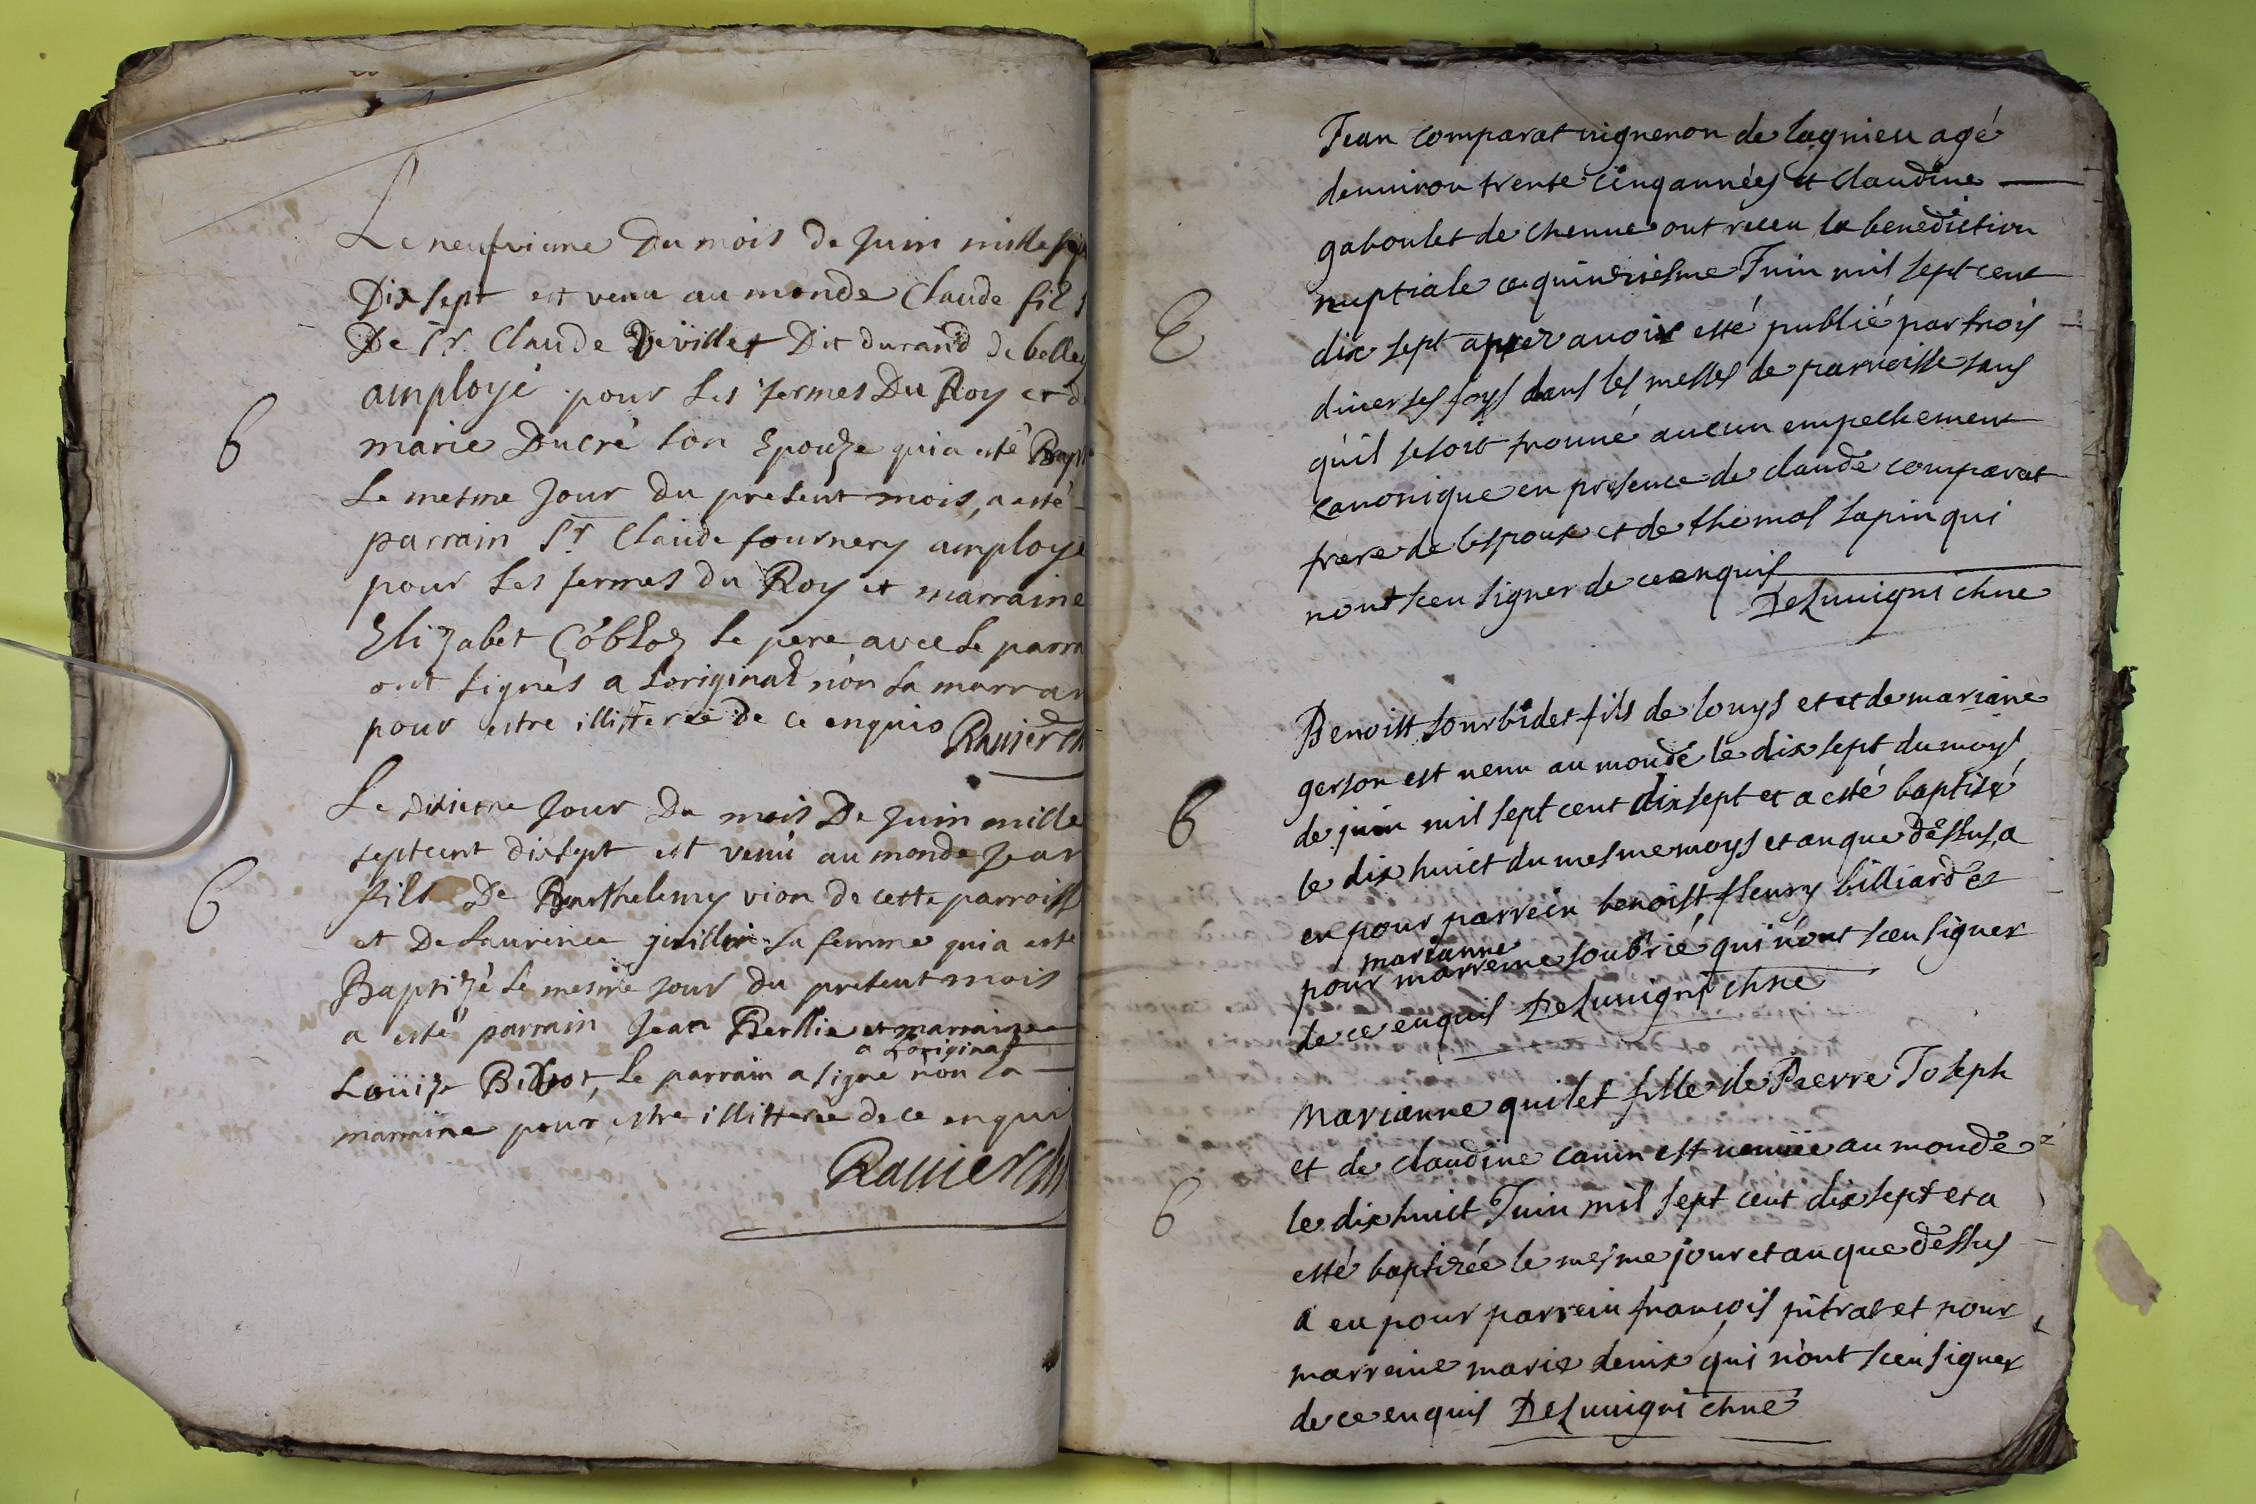 Le neufviame Du mois de Juin mille sep
Dix sept est venu au monde Claude fils
De Sr. Claude Devillet Dit durand de belley
amployé pour Les fermes Du Roy et d
6
marie Ducré son Epouze qui a esté Bapt
Le mesme Jour du present mois, a esté
parrain Sr Claude fournery amployé
pour Les fermes du Roy et marraine
Elizabet le pere avec Le parra
ont signés a Loriginal non La marrai
pour estre illitterée de ce enquis Ravier ch
Le dixieme Jour Du mois De Juin mille
septcent dixsept est venu au monde Jean
6
fils De Barthelemy vion de cette parroisse
et De Laurence guillin sa femme qui a esté
Baptizé Le mesme Jour du present mois
a esté parrain Jean Berllie et marraine
a Loriginal
Louize Bidrot, Le parrain a signé non la
marraine pour estre illitterée de ce enqui
Ravier ch
Jean comparat vigneron de lagnieu agé
denuiron trente cinq années et Claudine
gaboulet de chenue ont receu la benediction
nuptiale ce quinziesme Juin mil sept cent
E
dix sept apprez auoir esté publié par trois
diuerses foys dans les messes de parroisse sans
qu'il se soit trouué aucun empeschement
canonique en presence de claude comparat
frere de l'espoux et de thomas sapin qui
n'ont sceu signer de ce enquis
Deluuigni chne
Benoist sourbidet fils de louys et et de mariane
gerson est uenu au monde le dix sept du moys
6
de juin mil sept cent dix sept et a esté baptisé
le dix huict du mesme moys et an que dessus, a
eu pour parrein benoist fleury billiard et
marianne
pour marreine soubrié qui n'ont sceu signer
de ce enquis Deluuigni chne
Marianne quilet fille de Pierre Joseph
et de claudine canin est uenuë au monde
6
le dix huict Juin mil sept cent dix sept et a
esté baptizée le mesme jour et an que dessus
a eu pour parrein françois pitrat et pour
marreine marie denix qui n'ont sceu signer
de ce enquis Deluuigni chne